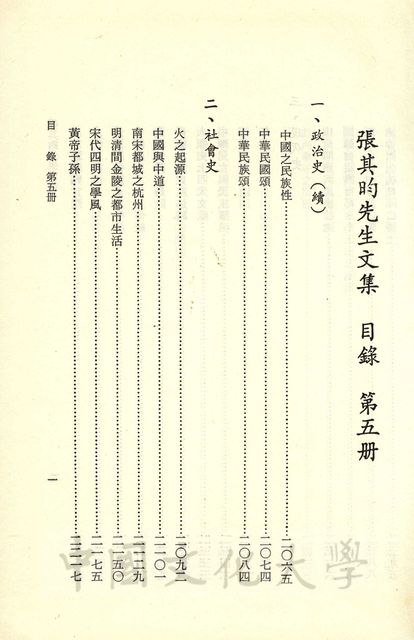 張其昀先生文集　目錄　第五册
一、政治史（續）
中國之民族性……二〇六五
中華民國頌……二〇七四
中華民族頌……二〇八四
二、社會史
火之起源……二〇九二
中國與中道……二一〇一
南宋都城之杭州……二一二九
明清間金陵之都市生活……二一五〇
宋代四明之學風……二一七五
黃帝子孫……二二一七
目錄　第五册
一
中國文化大學